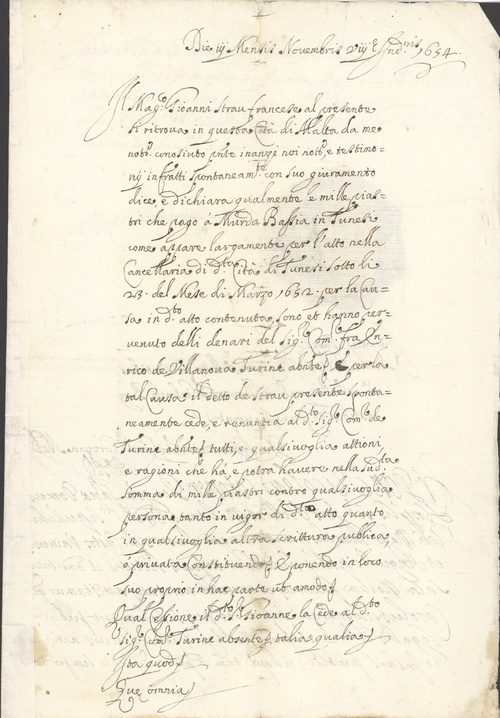 Die iij Mensis Novembris viij Indnis 1654
Il Mag:co Gioanni Strau francese al presente
si ritrova in questa Cità di Malta da me
notr: conosciuto pnte inanzi noi notr, e testimo-
nij infratti spontaneamte con suo giuramento
dice, e dichiara qualmente le mille pias-
tri che pago à Murda Bassia in Tunesi
come appare largamente per l'atto nella
Cancellaria di dta Cità di Tunesi sotto li
23 del Mese di Marzo 1652. per la Cau-
sa in dto atto contenuta sono et hanno per-
venuto delli denari del Sig:r Com:r fra En-
rico de Villanova Turine abnte, E per la
tal Causa il detto de Strau presente sponta-
neamente cede, e renuntia al dto Sig:r Com:r de
Turine abnte tutti, e qualsivoglia attioni
e ragioni che ha e potra havere nella sudta
somma di mille piastri contro qualsivoglia
persona tanto in vigor di dto atto quanto
in qualsivoglia altra scrittura publica,
o privata Constituendo, Et ponendo in loco
suo proprio in hac parte ut amodo
Qual Cessione il dto Gioanne la cede al dto
Sig:r Com:r Turine absente talia qualia
Ita quod
Que omnia